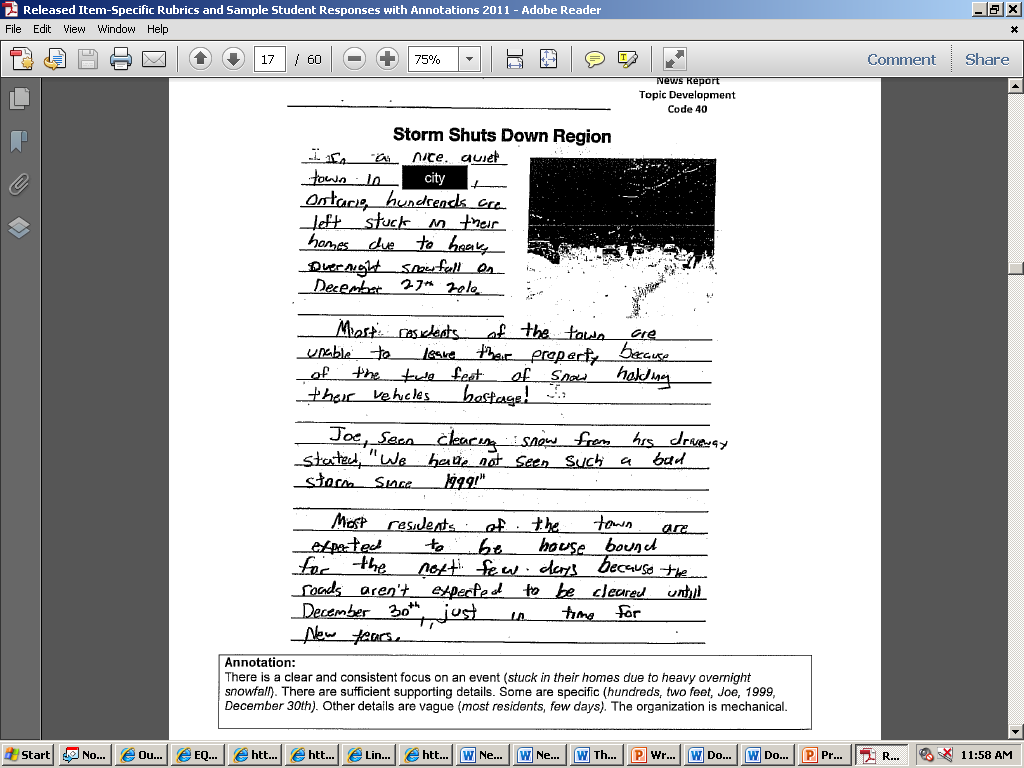 Released Item-Specific Rubrics and Sample Student Responses with Annotations 2011 - Adobe Reader
File Edit View Window Help
17 / 60 75% Comment Share
News Report
Topic Development
Code 40
Storm Shuts Down Region
In a nice quiet
town in city,
Ontario, hundrends are
left stuck in their
homes due to heavy
overnight snowfall on
December 27th 2010
Most residents of the town are
unable to leave their property because
of the two feet of snow holding
their vehicles hostage!
Joe, seen clearing snow from his driveway
stated, "We have not seen such a bad
storm since 1999!"
Most residents of the town are
expected to be house bound
for the next few days because the
roads aren't expected to be cleared untill
December 30th, just in time for
New Years.
Annotation:
There is a clear and consistent focus on an event (stuck in their homes due to heavy overnight
snowfall). There are sufficient supporting details. Some are specific (hundreds, two feet, Joe, 1999,
December 30th). Other details are vague (most residents, few days). The organization is mechanical.
Start No... Ou... EQ... htt... htt... Lin... htt... Ne... Ne... Th... Wr... Do... Do... Pr... R... 11:58 AM